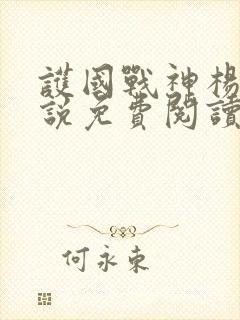 護國戰神楊
說免費閱讀
何永東